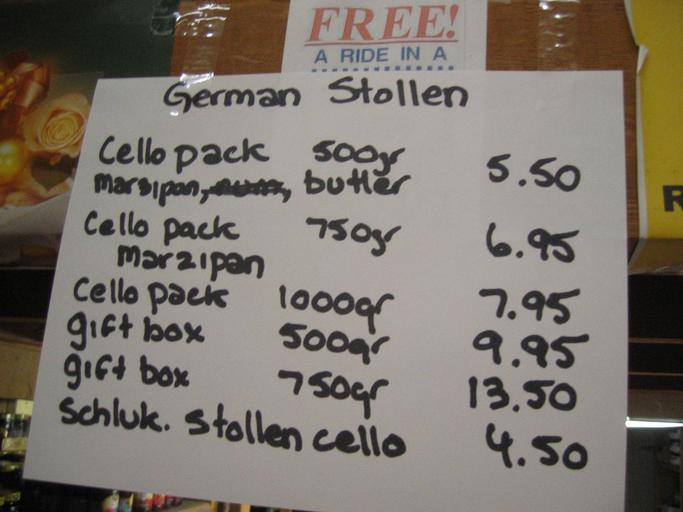 FREE!
A RIDE IN A
German Stollen
Cello pack 500gr 5.50
marzipan, butter
Cello pack 750gr 6.95
marzipan
Cello pack 1000gr 7.95
gift box 500gr 9.95
gift box 750gr 13.50
Schluk. Stollen cello 4.50
R